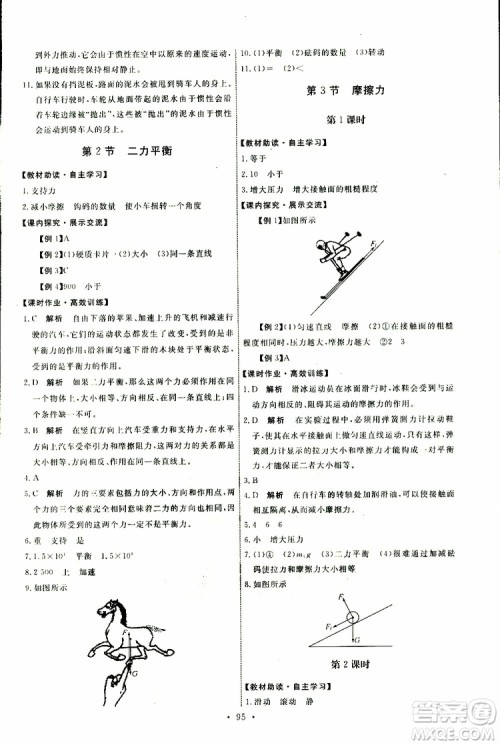 到外力推动，它们由于惯性在空中以原来的速度运动，
而地面始终保持相对静止。
11.如果没有挡泥板，路面的泥水可能甩到骑车人的身上。
自行车行驶时，车轮从地面带起的泥水由于惯性会沿
车轮边缘被“抛出”，这些被“抛出”的泥水由于惯性会
继续运动，从而甩到骑车人身上。
第2节 二力平衡
【教材助读·自主学习】
1.支持力
2.减小摩擦 钩码的数量 使小车扭转一个角度
【课内探究·展示交流】
【例1】A
【例2】(1)硬质卡片 (2)大小 (3)同一条直线
【例3】C
【例4】900 小于
【课时作业·高效训练】
1.C 解析 自由下落的苹果、加速上升的飞机和减速行
驶的汽车，它们的运动状态都发生了改变，受到的不是
平衡力的作用；沿斜面匀速下滑的木块处于平衡状态，
受到的是平衡力的作用。
2.D 解析 如果二力平衡，那么这两个力是作用在同
一个物体上，大小相等、方向相反、作用在同一直线上，
四个条件缺一不可。
3.B 解析 在竖直方向上汽车受重力和支持力；在水平
方向上汽车受牵引力和摩擦阻力，这两对力的关系都是
大小相等、方向相反、作用在同一直线上、作用在同一物
体上，都是平衡力。
4.A
5.C 解析 力的三要素包括力的大小、方向和作用点。
三要素完全相同意味着力的方向也相同，而方向相同的
两个力一定不是平衡力。
6.重 支持 等于
7.1.5×10⁴ 平衡 1.5×10⁴
8.2 500 上 加速
9.如图所示
F
G
10.(1)平衡 (2)砝码的数量 (3)转动
11.(1)= (2)<
第3节 摩擦力
第1课时
【教材助读·自主学习】
1.等于
2.10 小于
3.增大压力 增大接触面的粗糙程度
【课内探究·展示交流】
【例1】如图所示
F
【例2】(1)匀速直线 摩擦 (2)在接触面的粗糙
程度相同时，压力越大，摩擦力越大 ②2 3
【例3】A
【课时作业·高效训练】
1.D 解析 滑冰运动员在冰面滑行时，冰鞋与冰面是相
互接触的，阻碍其运动的力是摩擦力。
2.D 解析 在实验过程中，要用弹簧测力计水平拉着木
块在水平接触面上做匀速直线运动，这样才能够使弹簧
测力计对木块的拉力与木块受到的摩擦力是一对平衡
力，大小相等。
3.B
4.D 解析 在自行车的转轴处加润滑油，可以使接触面
相互隔离，从而减小摩擦力。
5.4 6
6.大小 增大压力
7.(1)④ (2)m₁g (3)二力平衡 (4)很难通过加减砝
码使拉力和摩擦力大小相等
8.如图所示
F
G
第2课时
【教材助读·自主学习】
1.滑动 滚动 静
· 95 ·
答案圈